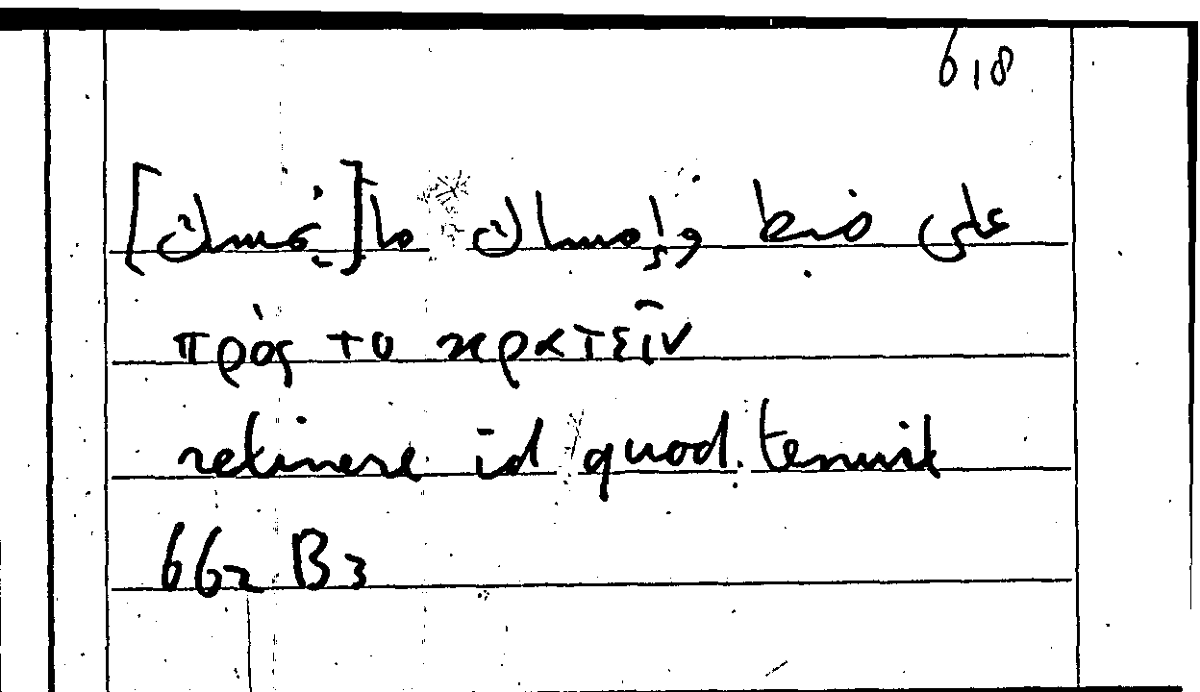 6,8
على ضبط وإمساك ما [يمسك]
πρὸς το κρατεῖν
retinere id quod tenuit
662 B3